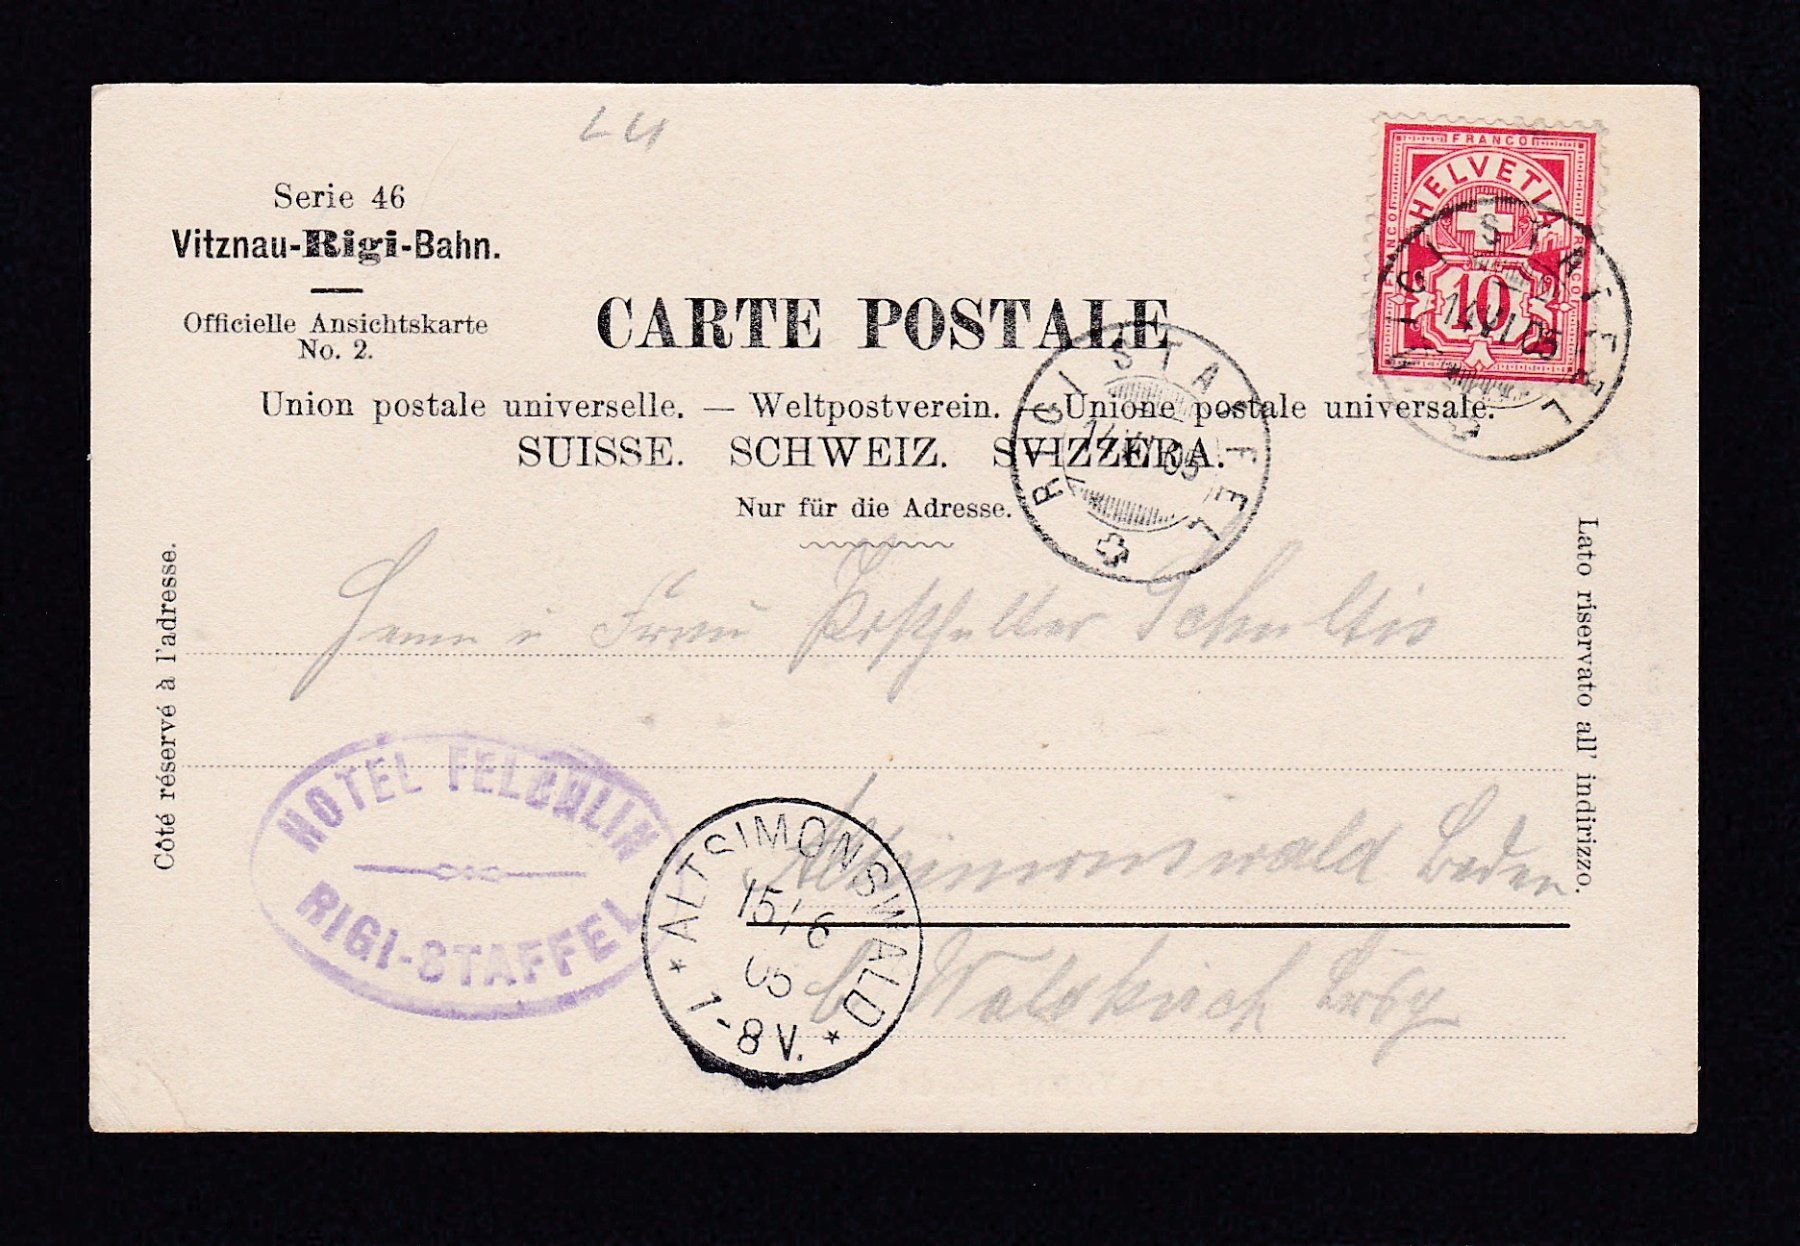 LU
Serie 46
Vitznau-Rigi-Bahn.
Officielle Ansichtskarte
No. 2.
CARTE POSTALE
Union postale universelle. — Weltpostverein. — Unione postale universale.
SUISSE. SCHWEIZ. SVIZZERA.
Nur für die Adresse.
FRANCO
FRANCO
FRANCO
HELVETIA
10
RIGI STAFFEL
14 VI 05
RIGI STAFFEL
14 VI 05
Côté réservé à l'adresse.
Lato riservato all' indirizzo.
Herrn u Frau Posthalter Schultis
HOTEL FELCHLIN
RIGI-STAFFEL
ALTSIMONSWALD
15/6
05
1-8V.
Altsimonswald Baden
b. Waldkirch Brsg